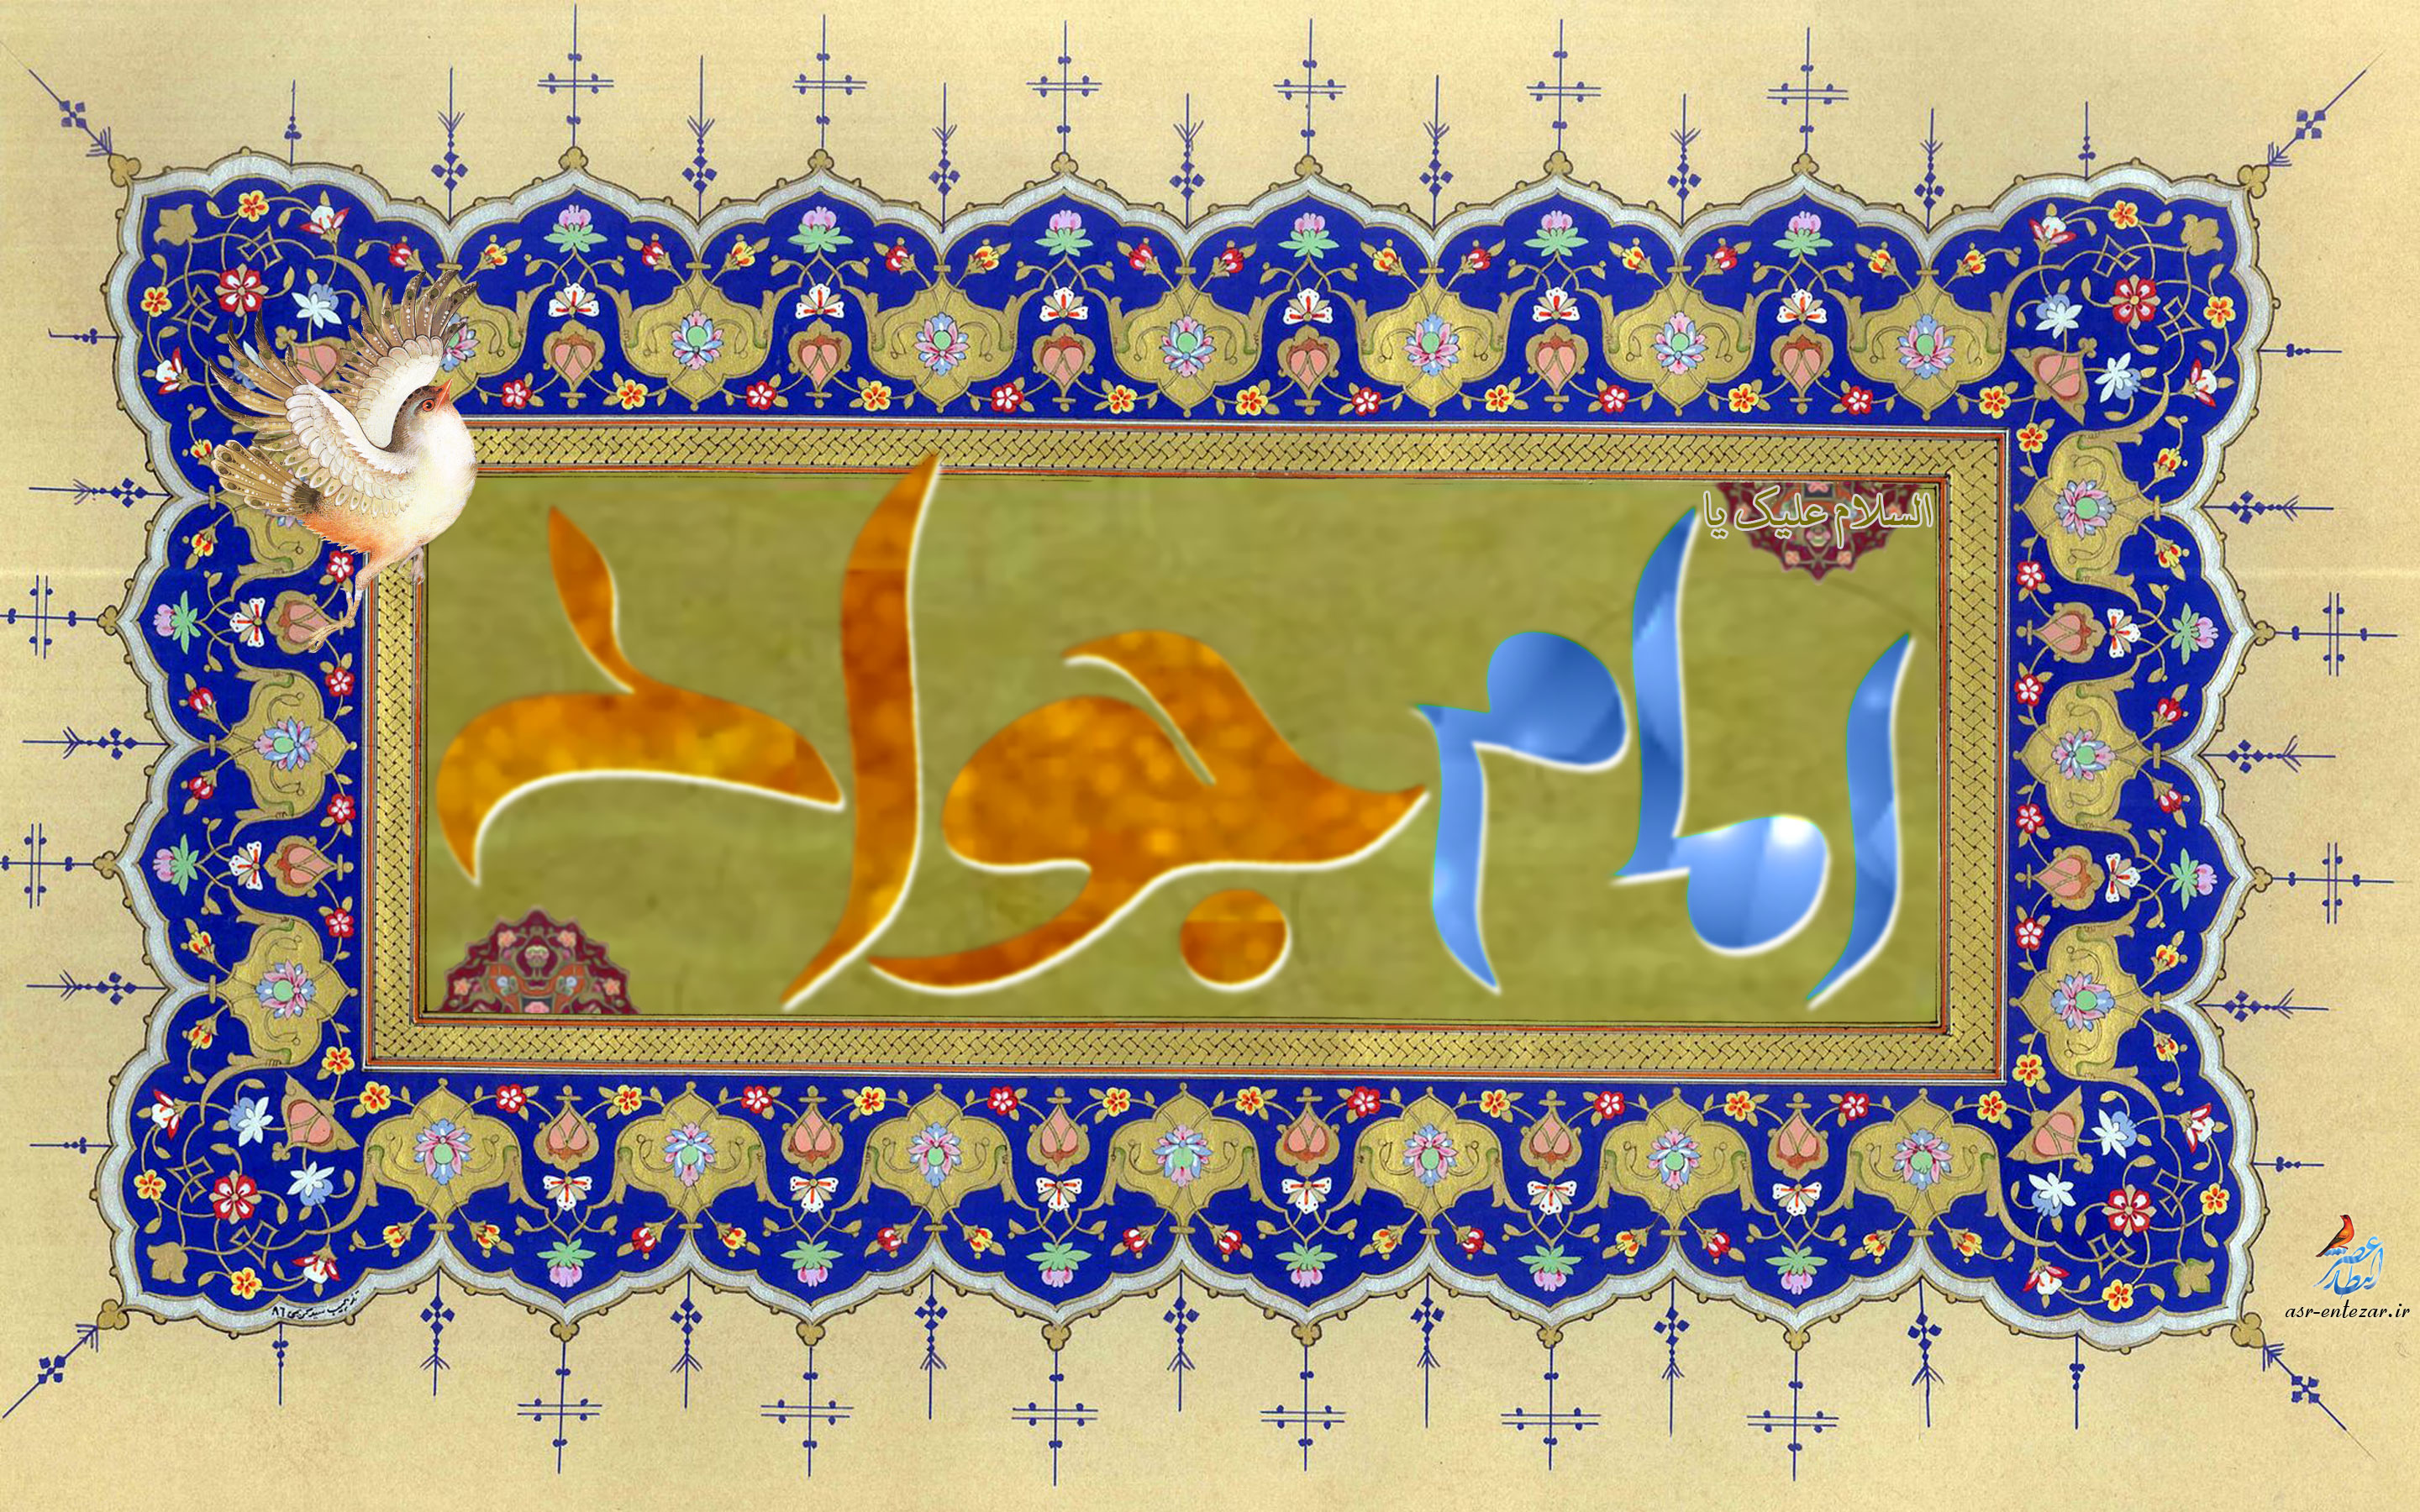 السلام علیک یا
امام جواد
عصر انتظار
asr-entezar.ir